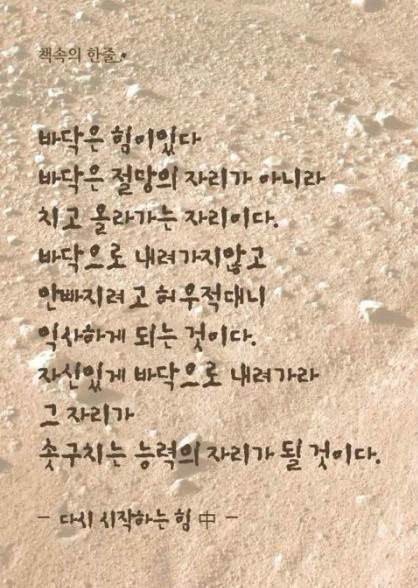 책속의 한줄
바닥은 힘이있다
바닥은 절망의 자리가 아니라
치고 올라가는 자리이다.
바닥으로 내려가지않고
안빠지려고 허우적대니
익사하게 되는 것이다.
자신있게 바닥으로 내려가라
그 자리가
솟구치는 능력의 자리가 될 것이다.
- 다시 시작하는 힘 中 -